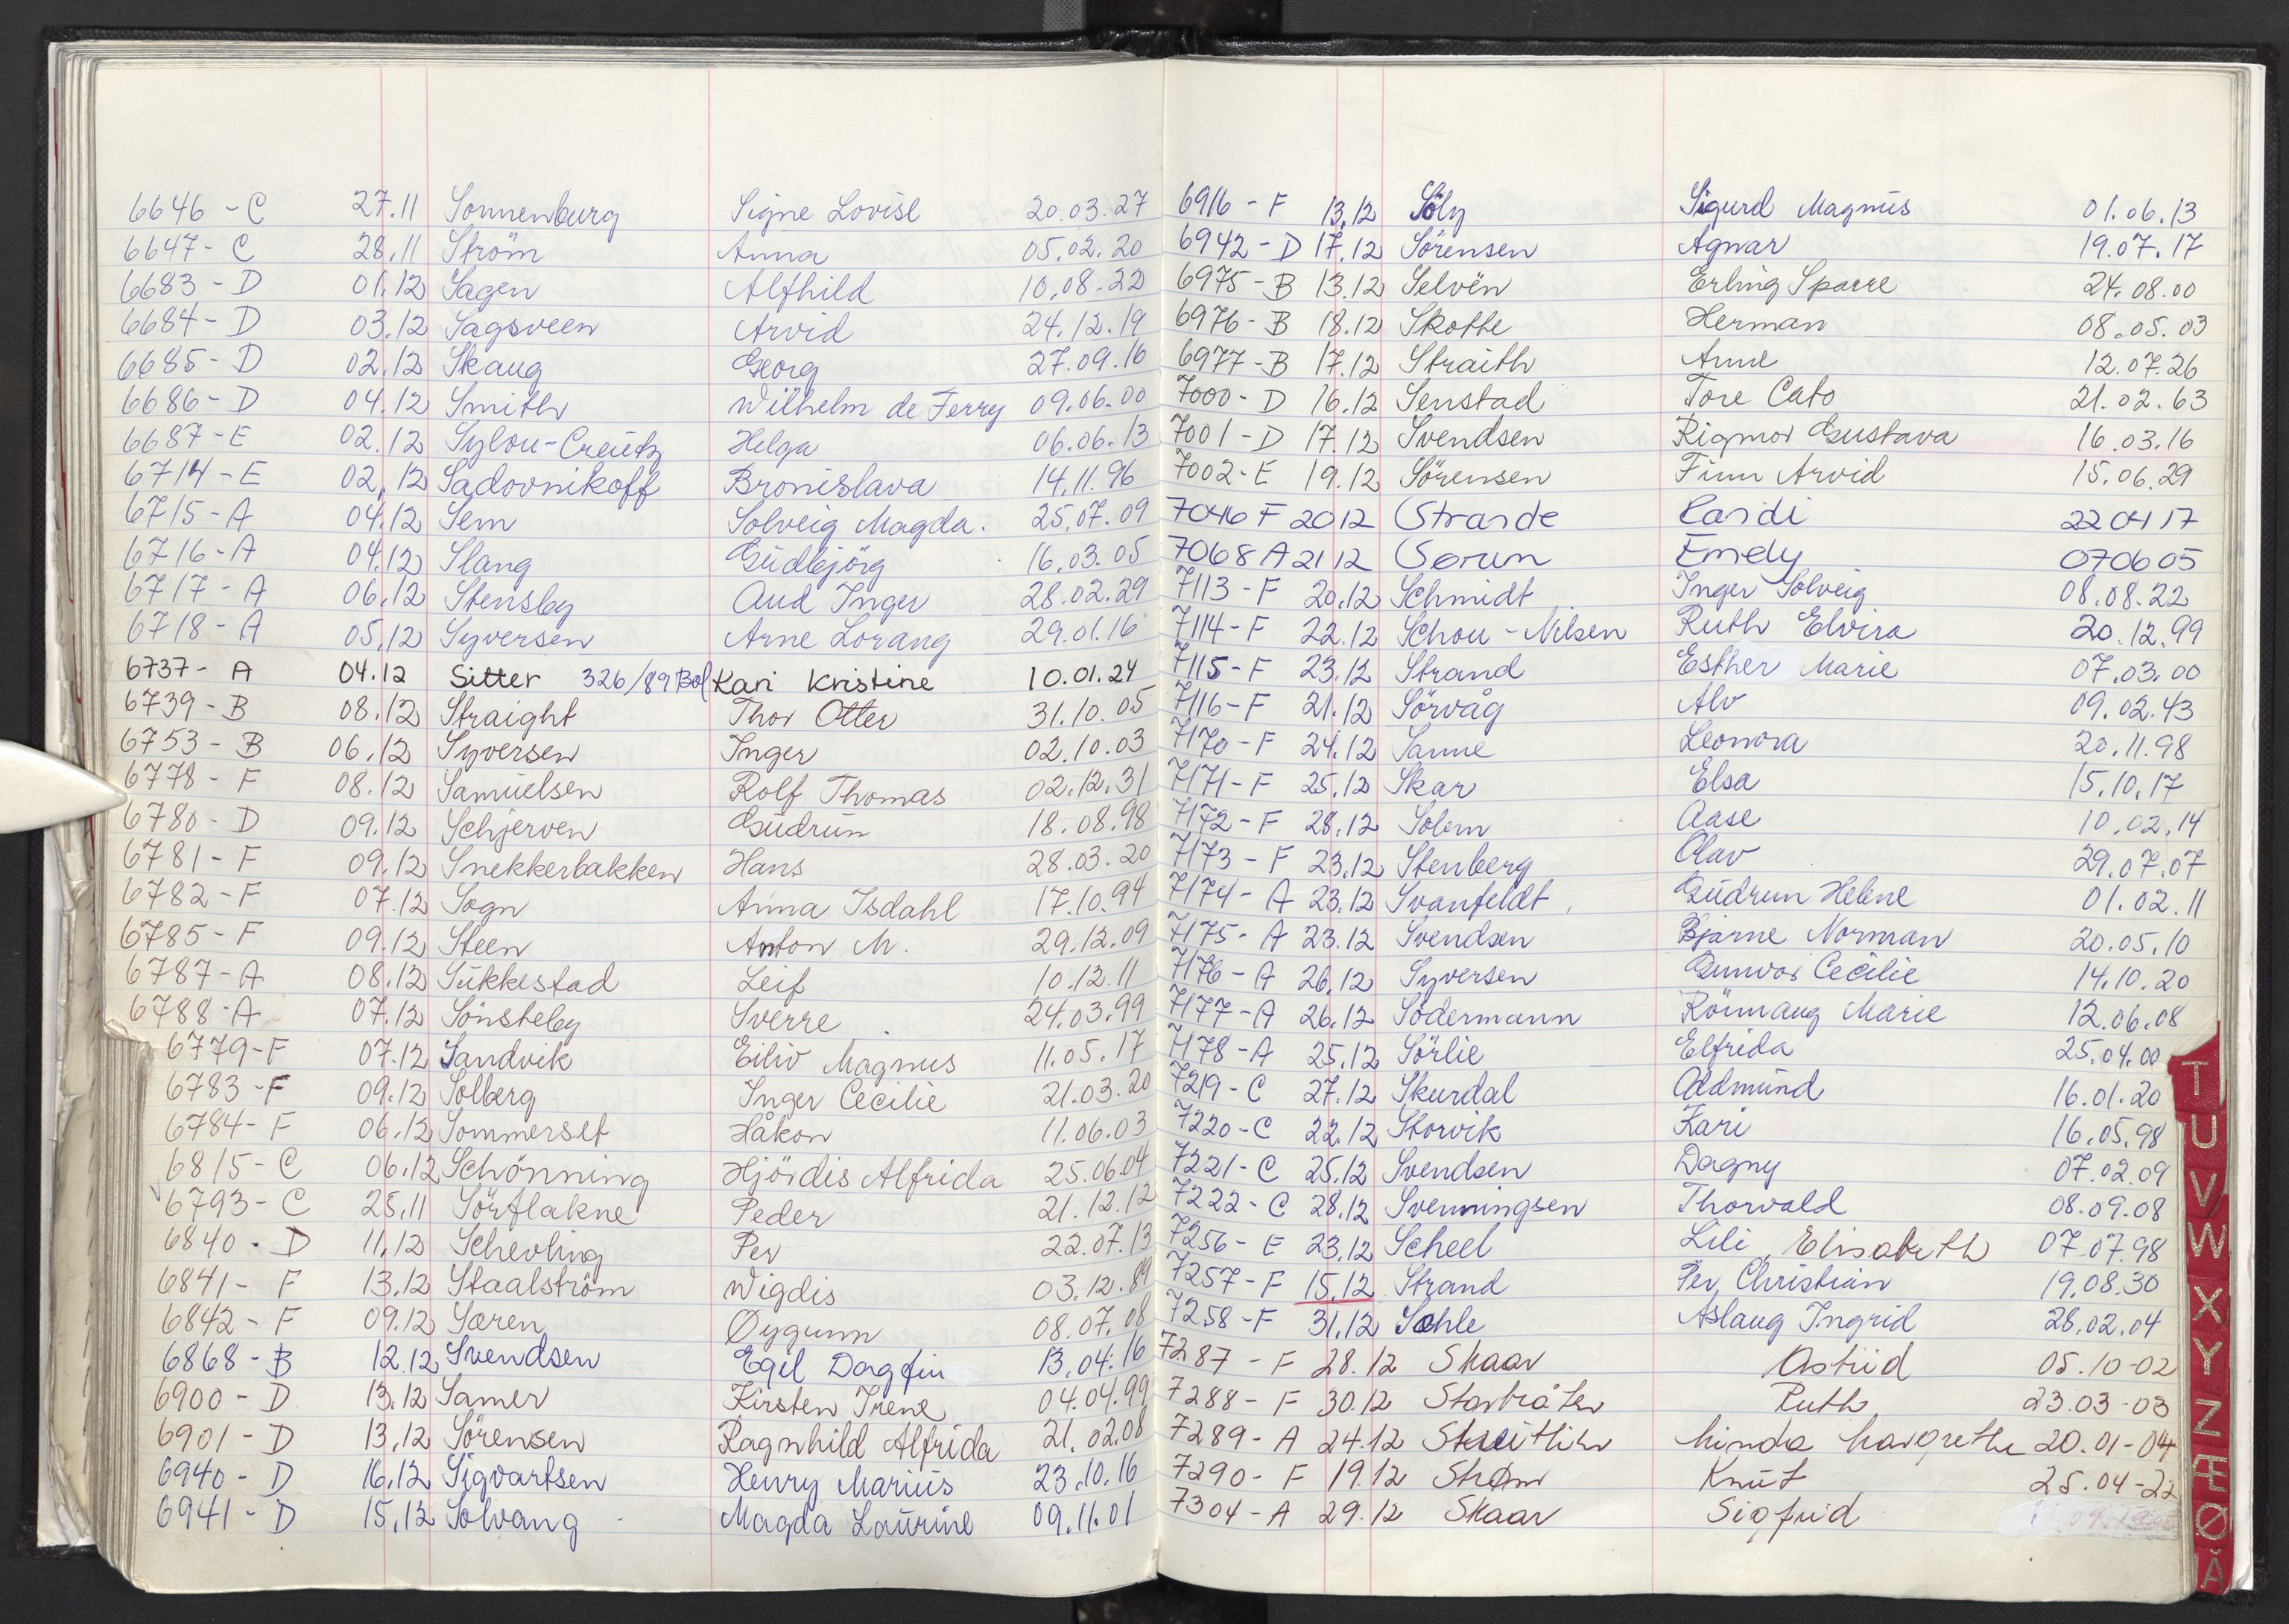 6646 - C 27.11 Sonnenburg Signe Lovise 20.03.27
6647 - C 28.11 Ström Anna 05.02.20
6683 - D 01.12 Sagen Alfhild 10.08.22
6684 - D 03.12 Sagsveen Arvid 24.12.19
6685 - D 02.12 Skaug Georg 27.09.16
6686 - D 04.12 Smith Wilhelm de Ferry 09.06.00
6687 - E 02.12 Sylou-Creutz Helga 06.06.13
6714 - E 02.12 Sadovnikoff Bronislava 14.11.96
6715 - A 04.12 Sem Solveig Magda. 25.07.09
6716 - A 04.12 Slang Gudbjörg 16.03.05
6717 - A 06.12 Stensby Aud Inger 28.02.29
6718 - A 05.12 Syversen Arne Lorang 29.01.16
6737 - A 04.12 Sitter 326/89 Bol Kari Kristine 10.01.24
6739 - B 08.12 Straight Thor Otter 31.10.05
6753 - B 06.12 Syversen Inger 02.10.03
6778 - F 08.12 Samuelsen Rolf Thomas 02.12.31
6780 - D 09.12 Schjerven Gudrun 18.08.98
6781 - F 09.12 Snekkerbakken Hans 28.03.20
6782 - F 07.12 Sogn Anna Isdahl 17.10.94
6785 - F 09.12 Steen Anton M. 29.12.09
6787 - A 08.12 Sukkestad Leif 10.12.11
6788 - A 07.12 Sönsteby Sverre 24.03.99
6779 - F 07.12 Sandvik Eiliv Magnus 11.05.17
6783 - F 09.12 Solberg Inger Cecilie 21.03.20
6784 - F 06.12 Sommerset Håkon 11.06.03
6815 - C 06.12 Schönning Hjördis Alfrida 25.06.04
6793 - C 25.11 Sörflakne Peder 21.12.12
6840 - D 11.12 Schevling Per 22.07.13
6841 - F 13.12 Staalström Wigdis 03.12.89
6842 - F 09.12 Søren Øygunn 08.07.08
6868 - B 12.12 Svendsen Egil Dagfin 13.04.16
6900 - D 13.12 Samer Kirsten Irene 04.04.99
6901 - D 13.12 Sörensen Ragnhild Alfrida 21.02.08
6940 - D 16.12 Sigvartsen Henry Marius 23.10.16
6941 - D 15.12 Solvang Magda Laurine 09.11.01
6916 - F 13.12 Söly Sigurd Magnus 01.06.13
6942 - D 17.12 Sörensen Agnar 19.07.17
6975 - B 13.12 Selvén Erling Sparre 24.08.00
6976 - B 18.12 Skotte Herman 08.05.03
6977 - B 17.12 Straith Anne 12.07.26
7000 - D 16.12 Senstad Tore Cato 21.02.63
7001 - D 17.12 Svendsen Rigmor Gustava 16.03.16
7002 - E 19.12 Sörensen Finn Arvid 15.06.29
7046 F 20 12 Strande Randi 22 04 17
7068 A 21 12 Sørum Emely 07 06 05
7113 - F 20.12 Schmidt Inger Solveig 08.08.22
7114 - F 22.12 Schou - Nilsen Ruth Elvira 20.12.99
7115 - F 23.12 Strand Esther Marie 07.03.00
7116 - F 21.12 Sörvåg Alv 09.02.43
7170 - F 24.12 Sanne Leonora 20.11.98
7171 - F 25.12 Skar Elsa 15.10.17
7172 - F 28.12 Solem Aase 10.02.14
7173 - F 23.12 Stenberg Olav 29.07.07
7174 - A 23.12 Svanfeldt Gudrun Helene 01.02.11
7175 - A 23.12 Svendsen Bjarne Norman 20.05.10
7176 - A 26.12 Syversen Gunvor Cecilie 14.10.20
7177 - A 26.12 Södermann Rönnaug Marie 12.06.08
7178 - A 25.12 Sörlie Elfrida 25.04.00
7219 - C 27.12 Skurdal Oddmund 16.01.20
7220 - C 22.12 Storvik Kari 16.05.98
7221 - C 25.12 Svendsen Dagny 07.02.09
7222 - C 28.12 Svenningsen Thorvald 08.09.08
7256 - E 23.12 Scheel Lili Elisabeth 07.07.98
7257 - F 15.12 Strand Per Christian 19.08.30
7258 - F 31.12 Sohle Aslaug Ingrid 28.02.04
7287 - F 28.12 Skaar Astrid 05.10-02
7288 - F 30.12 Storbråten Ruth 23.03-03
7289 - A 24.12 Margrethe 20.01-04
7290 - F 19.12 Strøm Knut 25.04-22
7304 - A 29.12 Skaar Sigfrid
T
U
V
W
X
Y
Z
Æ
Ø
Å